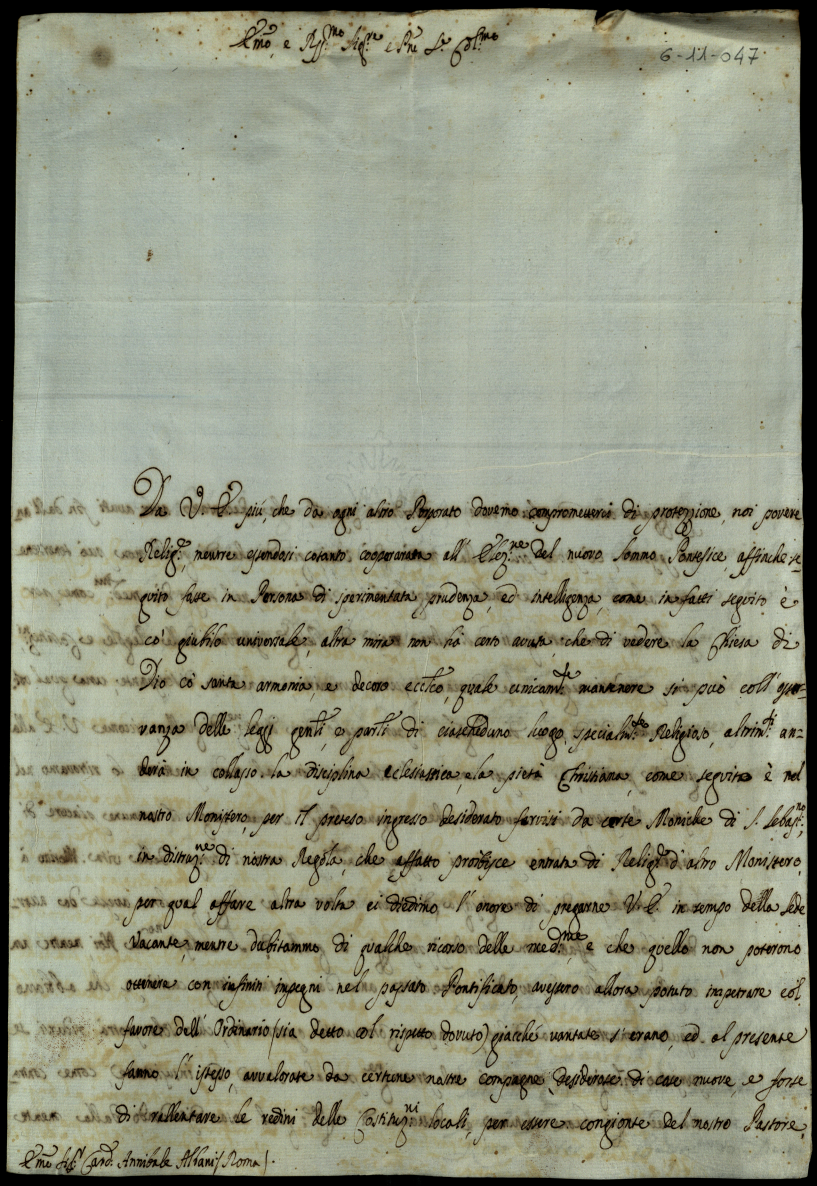 Em̃o, e Rſſ.mo Sig.re e Pñe S.r Col.mo
6-11-047
Da V. E. più, che da ogni altro Porporato dovemo comprometterci di protezzione, noi povere
Relig.e, mentre essendosi cotanto cooperata all' Elez.ne del nuovo Sommo Pontefice, affinchè se-
guito fosse in Persona di sperimentata prudenza, ed intelligenza, come in fatti seguito è
cõ giubilo universale, altra mira non hà certo avuta, che di vedere la Chiesa di
Dio cõ santa armonia, e decoro eccl̃co, quale unicam.te mantenere si può coll' osser-
vanza delle leggi gen̄li, e part̄i di ciascheduno luogo, specialm.te Religioso, altrim.ti an-
derà in collasso la disciplina eclesiastica, e la pietà Christiana, come seguita è nel
nostro Monistero, per il preteso ingresso desiderato farvisi da certe Moniche di S. Sebast.no,
in distruz.ne di nostra Regola, che affatto proibisce entrata di Relig.e d'altro Monistero,
per qual affare altra volta ci diedimo l'onore di pregarne V. E. in tempo della Sede
Vacante, mentre dubitammo di qualche ricorso delle med.me e che quello non poterono
ottenere con infiniti impegni nel passato Pontificato, avessero allora potuto impetrare col
favore dell' Ordinario (sia detto col rispetto dovuto) giacchè vantate s'erano, ed al presente
fanno l'istesso, avvalorate da certune nostre compagne desiderose di cose nuove, e forse
di rallentare le redini delle Costituz.ni locali, per essere congionte del nostro Pastore,
Em̃o Sig.r Card. Annibale Albani (Roma).